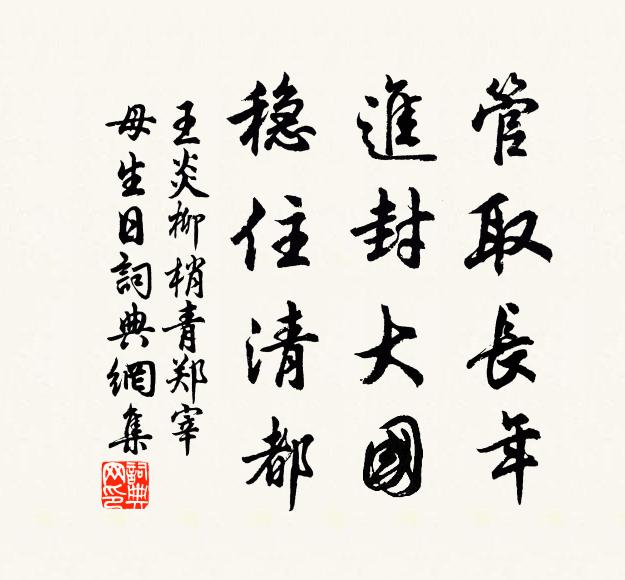 管取長年
進封大國
穏住清都
王炎柳梢青郑宰
母生日詞典網集
詞典網印